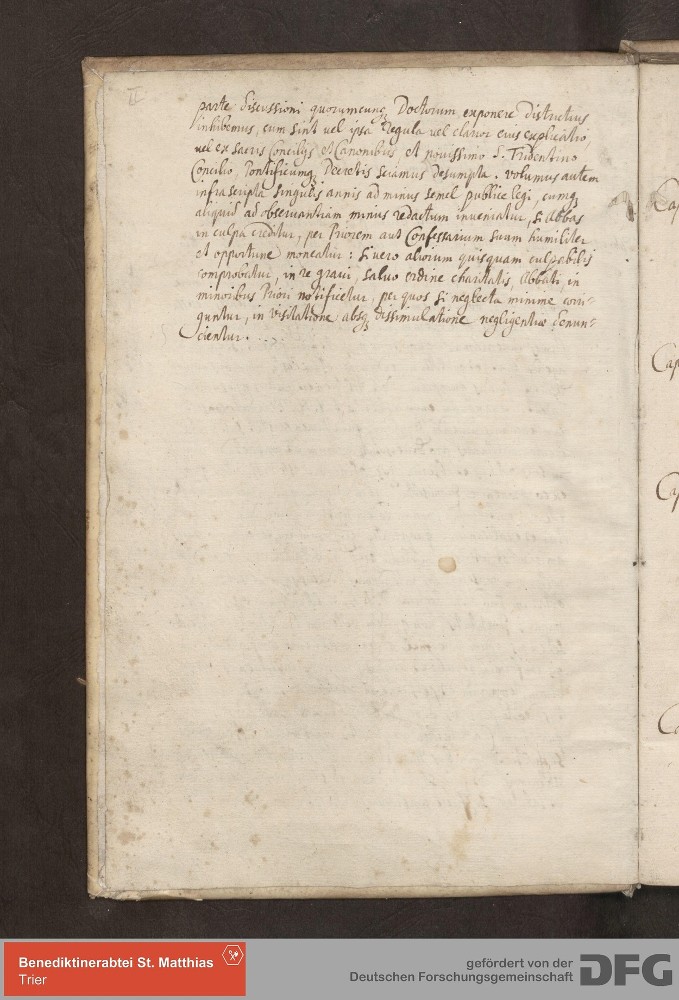 II
parte discussioni quorumcunq; Doctorum exponere districtius
inhibemus, cum sint vel ipsa Regula vel clarior eius explicatio,
vel ex sacris Concilijs et Canonibus, et novissimo S. Tridentino
Concilio, Pontificumq; Decretis sciamus desumpta. volumus autem
infra scripta singulis annis ad minus semel publice legi, cumq;
aliquid ad observantiam minus redactum inveniatur, si Abbas
in culpa creditur, per Priorem aut Confessarium suum humiliter
et opportune moneatur: si vero aliorum quisquam culpabilis
comprobatur, in re gravi, salvo ordine charitatis, Abbati, in
minoribus Priori notificetur, per quos si neglecta minime corri-
guntur, in visitatione absq; dissimulatione negligentiæ denun-
cientur.
Cap
Cap
Ca
Benediktinerabtei St. Matthias
Trier
gefördert von der
Deutschen Forschungsgemeinschaft
DFG